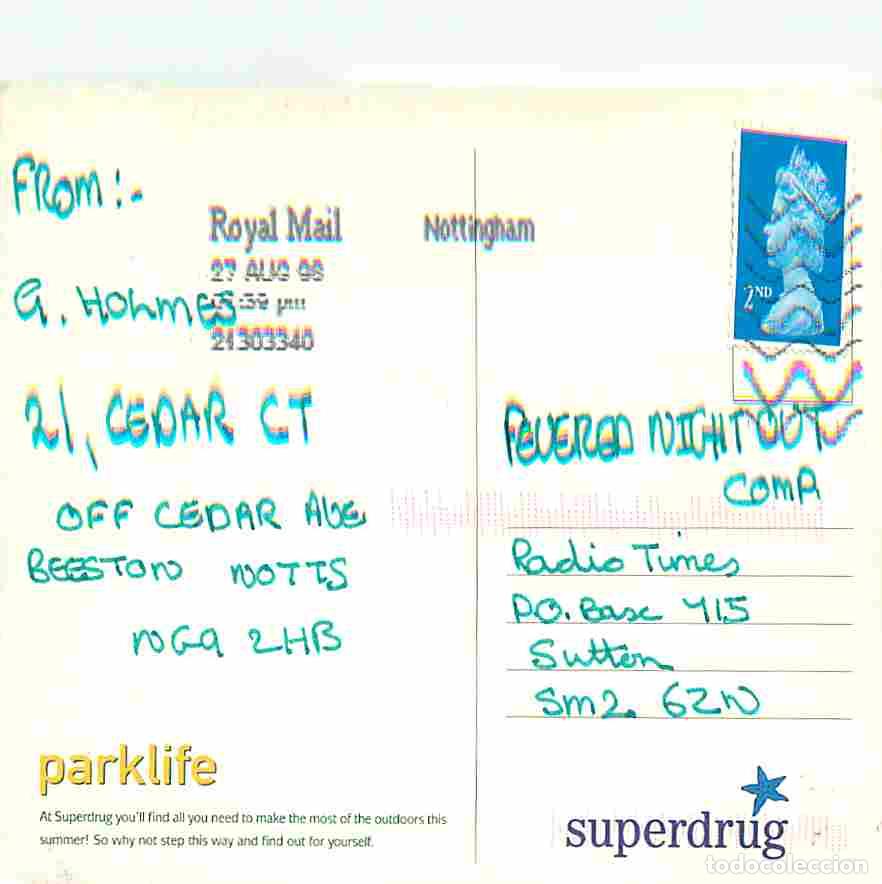 FROM:-
Royal Mail
Nottingham
27 AUG 98
:39 pm
21303340
G. HOLMES
21, CEDAR CT
OFF CEDAR AVE
BEESTON NOTTS
NG9 2HB
parklife
At Superdrug you'll find all you need to make the most of the outdoors this
summer! So why not step this way and find out for yourself.
2ND
FEVERED NIGHT OUT
COMP
Radio Times
P.O. Box 415
Sutton
SM2. 6ZN
superdrug
todocoleccion